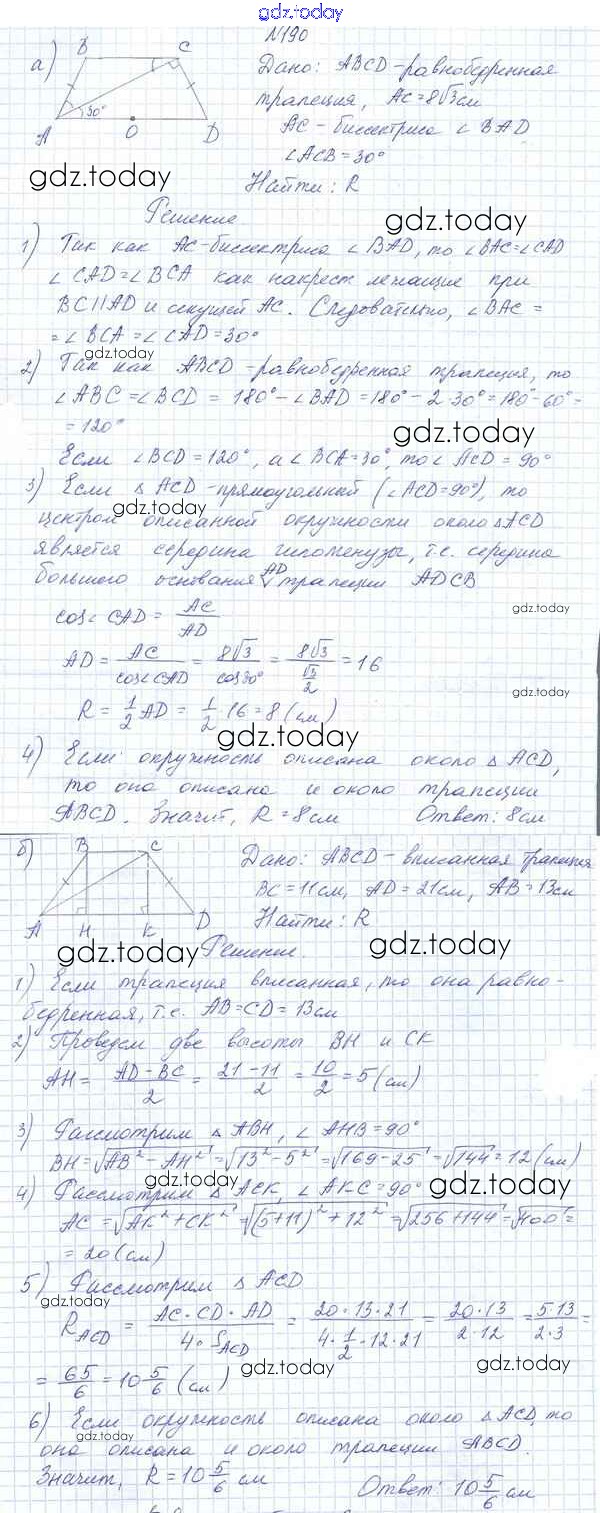 gdz.today
N190
а) B C
30°
A O D
Дано: ABCD - равнобедренная
трапеция, AC = 8√3 см
AC - биссектриса ∠BAD
∠ACB = 30°
gdz.today
Найти: R
Решение
gdz.today
1) Так как AC-биссектриса ∠BAD, то ∠BAC=∠CAD
∠CAD=∠BCA как накрест лежащие при
BC||AD и секущей AC. Следовательно, ∠BAC =
= ∠BCA = ∠CAD = 30°
gdz.today
2) Так как ABCD - равнобедренная трапеция, то
∠ABC = ∠BCD = 180° - ∠BAD = 180° - 2·30° = 180° - 60° =
= 120°
gdz.today
Если ∠BCD = 120°, а ∠BCA = 30°, то ∠ACD = 90°
3) Если △ACD - прямоугольный (∠ACD = 90°), то
gdz.today
центром описанной окружности около △ACD
является середина гипотенузы, т.е. середина
большего основания AD трапеции ADCB
cos∠CAD = AC/AD
gdz.today
AD = AC/cos∠CAD = 8√3/cos30° = 8√3/(√3/2) = 16
gdz.today
R = 1/2 AD = 1/2 · 16 = 8 (см)
gdz.today
4) Если окружность описана около △ACD,
то она описана и около трапеции
ABCD. Значит, R = 8 см Ответ: 8 см
б) B C
A H K D
Дано: ABCD - вписанная трапеция
BC = 11 см, AD = 21 см, AB = 13 см
Найти: R
gdz.today gdz.today
Решение.
1) Если трапеция вписанная, то она равно-
бедренная, т.е. AB = CD = 13 см
2) Проведем две высоты BH и CK
AH = (AD - BC)/2 = (21 - 11)/2 = 10/2 = 5 (см)
3) Рассмотрим △ABH, ∠AHB = 90°
BH = √(AB² - AH²) = √(13² - 5²) = √(169 - 25) = √144 = 12 (см)
4) Рассмотрим △ACK, ∠AKC = 90°
gdz.today gdz.today
AC = √(AK² + CK²) = √((5+11)² + 12²) = √(256 + 144) = √400 =
= 20 (см)
5) Рассмотрим △ACD
gdz.today
R ACD = (AC · CD · AD)/(4 · S ACD) = (20 · 13 · 21)/(4 · 1/2 · 12 · 21) = (20 · 13)/(2 · 12) = (5 · 13)/(2 · 3) =
gdz.today gdz.today
= 65/6 = 10 5/6 (см)
6) Если окружность описана около △ACD, то
она описана и около трапеции ABCD.
gdz.today gdz.today
Значит, R = 10 5/6 см Ответ: 10 5/6 см